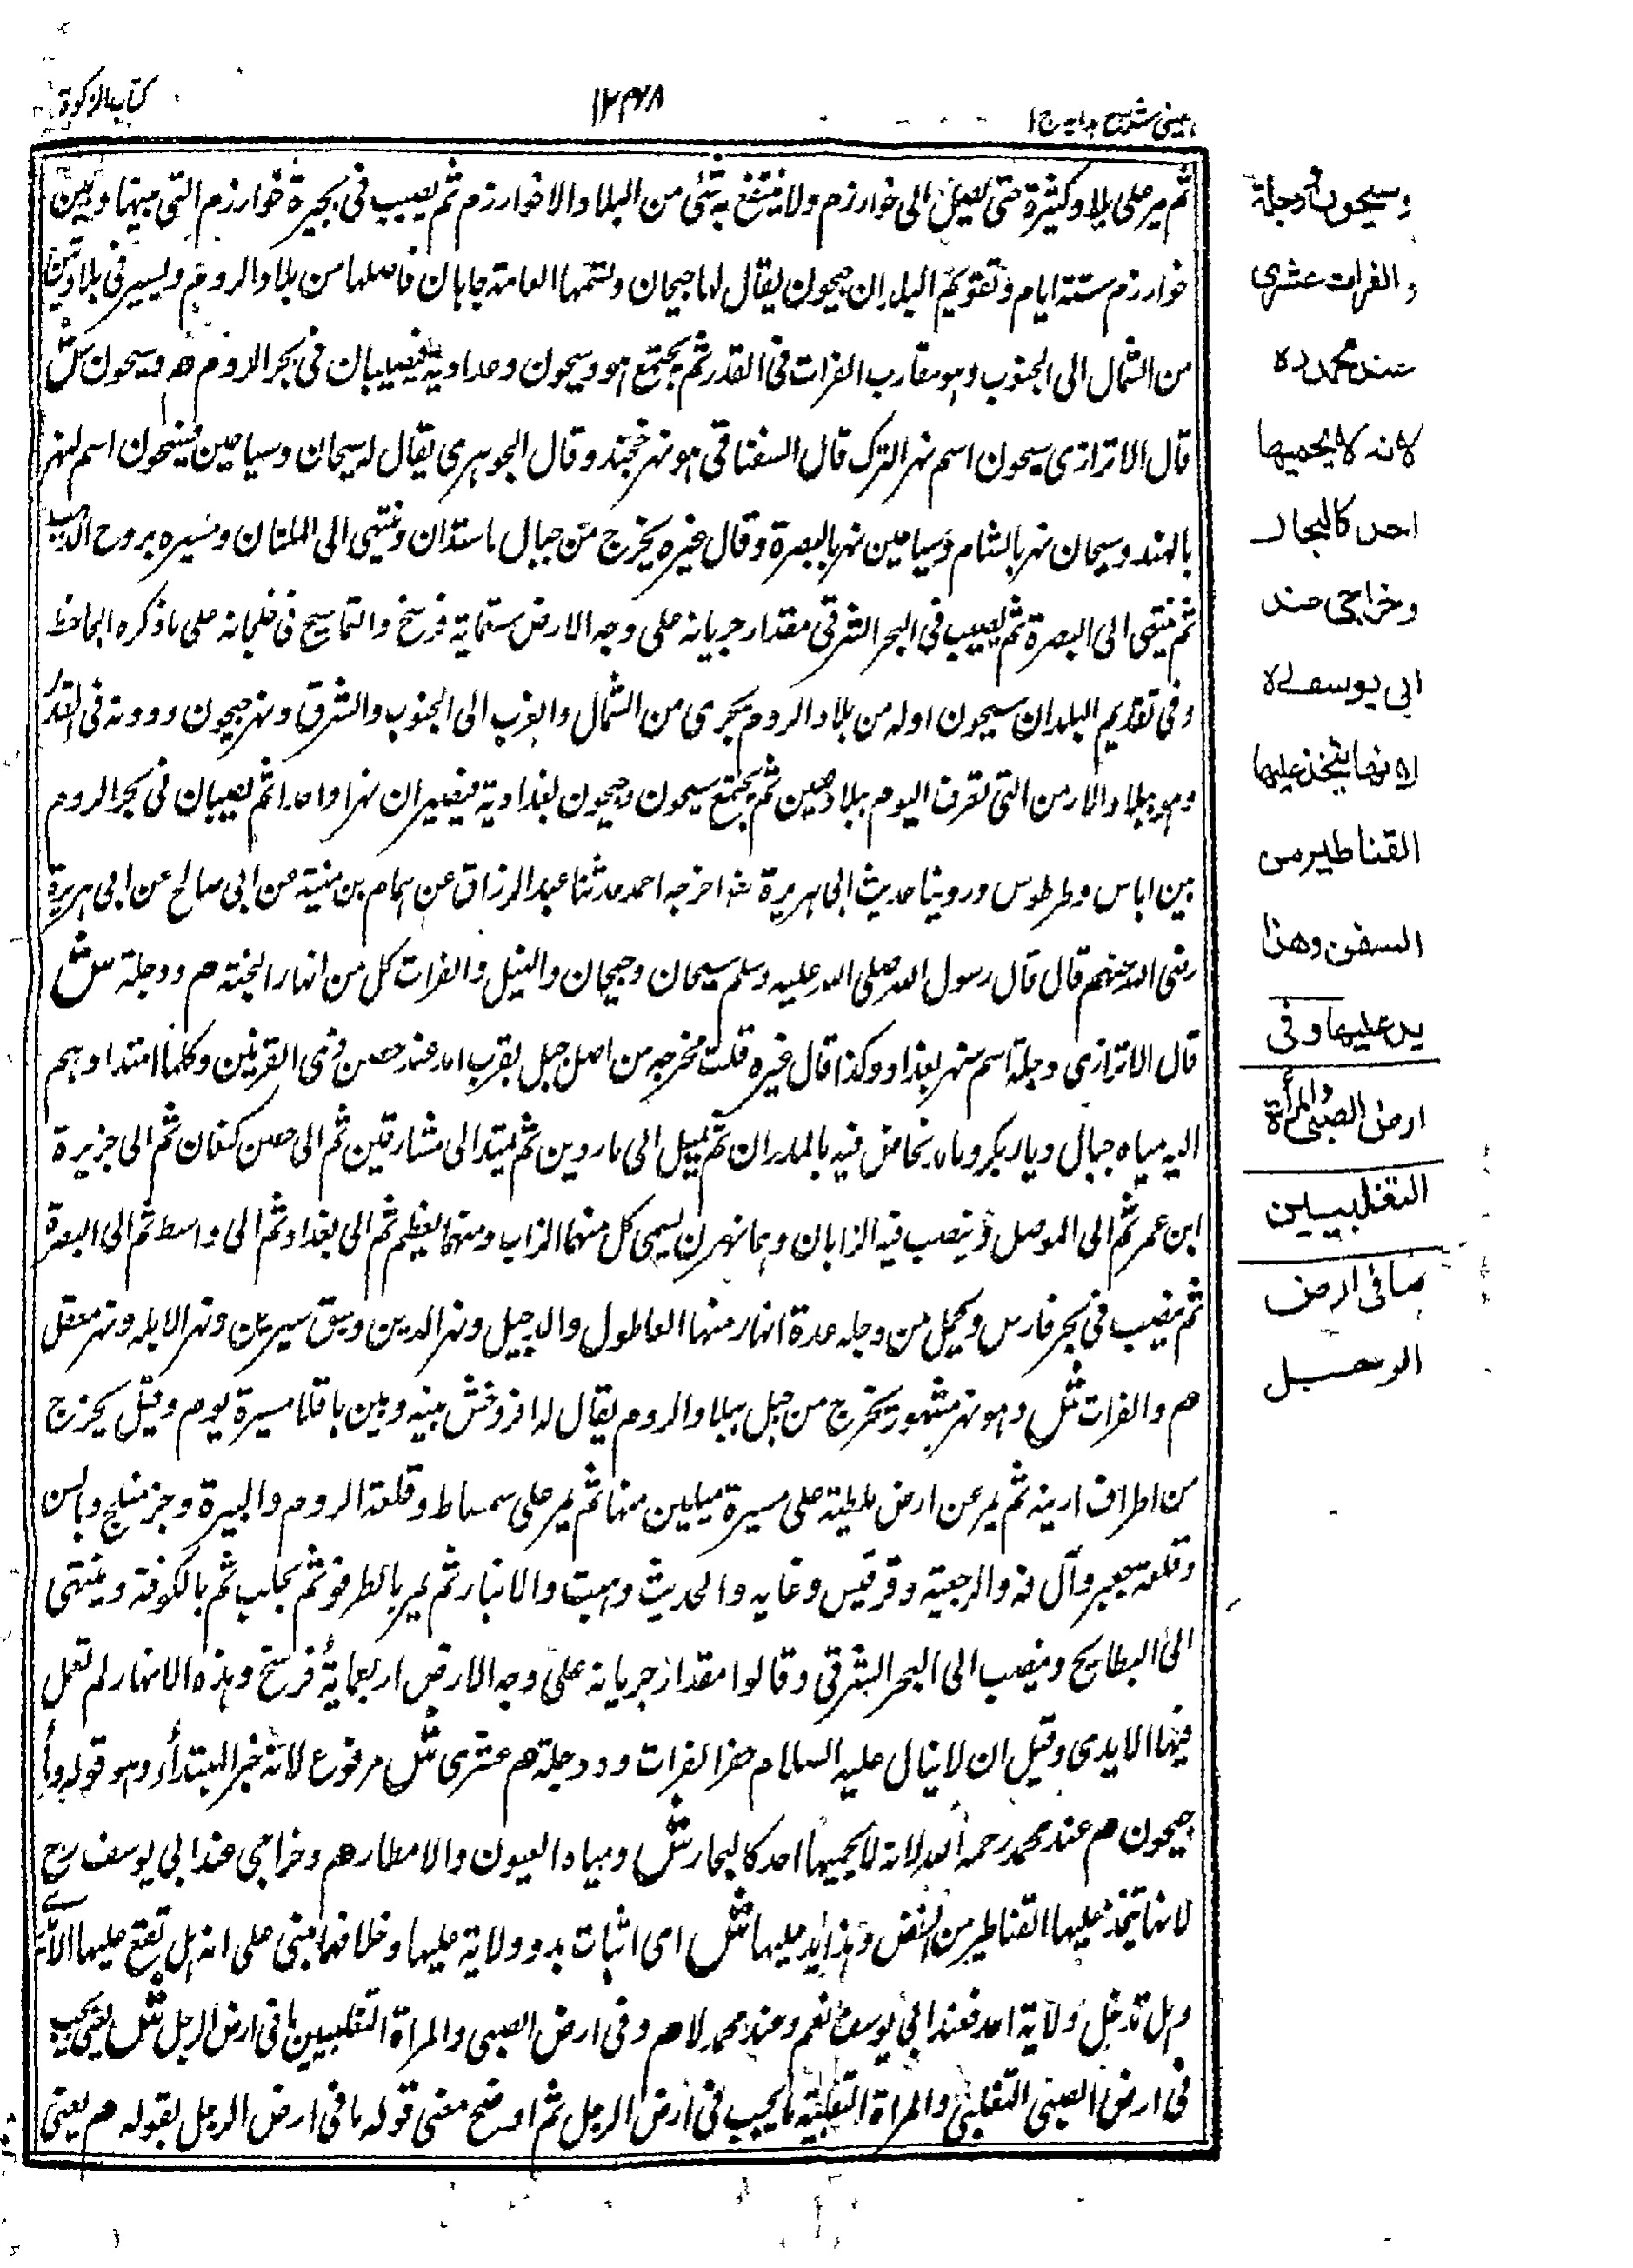 عینی شرح هدایه ج ا
۱۲۴۸
کتاب الزکوة
ثم يمر على بلاد كثيرة حتى يصل الى خوارزم ولا ينتفع به شئ من البلاد الا خوارزم ثم يصب فى بحيرة خوارزم التى بينها وبين
خوارزم ستة ايام وفى تقويم البلدان جيحون يقال لها جيحان وتسميها العامة جاهان فاصلها من بلاد الروم ويسير فى بلاد
من الشمال الى الجنوب وهو مقارب الفرات فى القدر ثم يجتمع هو وسيحون وفيصيبان فى بحر الروم هم وسيحون ش
قال الاترازى سيحون اسم نهر الترك قال السغناقى هو نهر خجند وقال الجوهرى يقال له سيحان وسياحين فسيحون اسم لنهر
بالهند وسيحان نهر بالشام وسياحين نهر بالبصرة وقال غيره يخرج من جبال وينتهى الى الملتان
ثم ينتهى الى البصرة ثم يصب فى البحر الشرقى مقدار جريانه على وجه الارض ستماية فرسخ والتماسيح فى خلجانه على ما ذكره الجاحظ
وفى تقديم البلدان سيحون اوله من بلاد الروم يجرى من الشمال والغرب الى الجنوب والشرق ونهر جيحون ودونه فى القدر
وهو ببلاد الارمن التى تعرف اليوم ببلاد ثم يجتمع سيحون وجيحون فيصيران نهرا واحدا ثم يصبان فى بحر الروم
بين اياس وطرطوس وروينا حديث ابى هريرة اخرجه احمد حدثنا عبد الرزاق عن همام بن منبه عن ابى صالح عن ابى هريرة
رضى الله عنهم قال قال رسول الله صلى الله عليه وسلم سيحان وجيحان والنيل والفرات كل من انهار الجنة هم ودجلة ش
قال الاترازى دجلة اسم نهر بغداد وكذا قال غيره قلت مخرجه من اصل جبل بقرب امد عند حصن ذى القرنين وكلما امتد اوهم
اليه مياه جبال ديار بكر وامد يخاض فيه بالدواب ثم يميل الى ماردين ثم يمتد الى مشارقين ثم الى حصن كيفان ثم الى جزيرة
ابن عمر ثم الى الموصل وينصب فيه الزابان وهما نهران يسمى كل منهما الزاب ومنهما يعظم ثم الى بغداد ثم الى واسط ثم الى البصرة
ثم ينصب فى بحر فارس ويحمل من دجله عدة انهار منها القاطول والدجيل ونهر الدين وبق سيرين ونهر الايله ونهر معقل
هم والفرات ش وهو نهر مشهور يخرج من جبل ببلاد الروم يقال له افرونخش بينه وبين باقلا مسيرة يوم وقيل يخرج
من اطراف ارمينه ثم يمر عن ارض ملطية على مسيرة ميلين منها ثم يمر على سمساط وقلعة الروم والبيرة وجز منبج وبالس
وقلعة جعبر والرقة والرحبة وقرقيس وعانه والحديث وهيت والانبار ثم يمر بالطرفو ثم بحلب ثم بالكوفة وينتهى
الى البطايح وينصب الى البحر الشرقى وقالوا مقدار جريانه على وجه الارض اربعماية فرسخ وهذه الانهار لم تعمل
فيها الايدى وقيل ان دانيال عليه السلام حفر الفرات ودجلة هم عشرى ش مرفوع لانه خبر المبتدأ وهو قوله وما
جيحون هم عند محمد رحمه الله لانه لا يحميها احد كالبحار ش ومياه العيون والامطار هم وخراجى عند ابى يوسف رح
لانها يتخذ عليها القناطير من السفن وهذا يد عليها ش اى اثبات يد وولاية عليها وخلافهما مبنى على انه هل تقع عليها الايد
وهل تدخل ولاية احد فعند ابى يوسف نعم وعند محمد لا هم وفى ارض الصبى والمراة التغلبيين ما فى ارض الرجل ش يعنى يجب
فى ارض الصبى التغلبى والمراة التغلبية ما يجب فى ارض الرجل ثم اوضح معنى قوله ما فى ارض الرجل بقوله هم يعنى
وسيحون ودجلة
والفرات عشرى
عند محمد رہ
لانه لا يحميها
احد كالبحار
وخراجى عند
ابى يوسف رہ
لانها يتخذ عليها
القناطير من
السفن وهذا
يد عليها وفى
ارض الصبى والمرأة
التغلبيين
ما فى ارض
الرجل